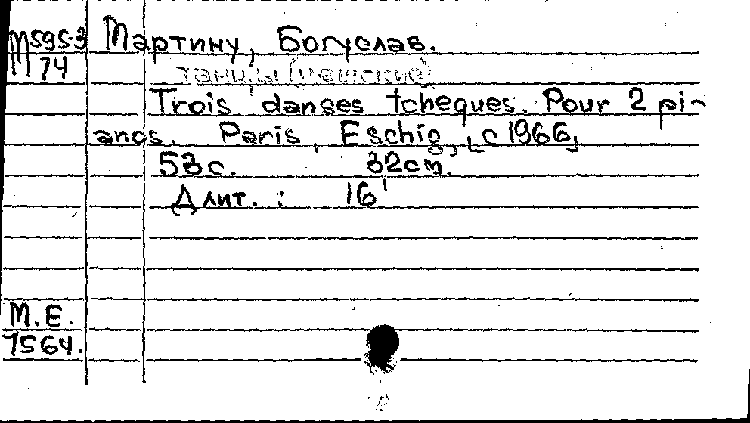 М5953 Мартину, Богуслав.
М74 Танцы (чешские)
Trois danses tcheques. Pour 2 pi-
anos. Paris, Eschig, [c 1966]
53 с. 32 cm.
Длит.: 16'
М.Е.
7564.